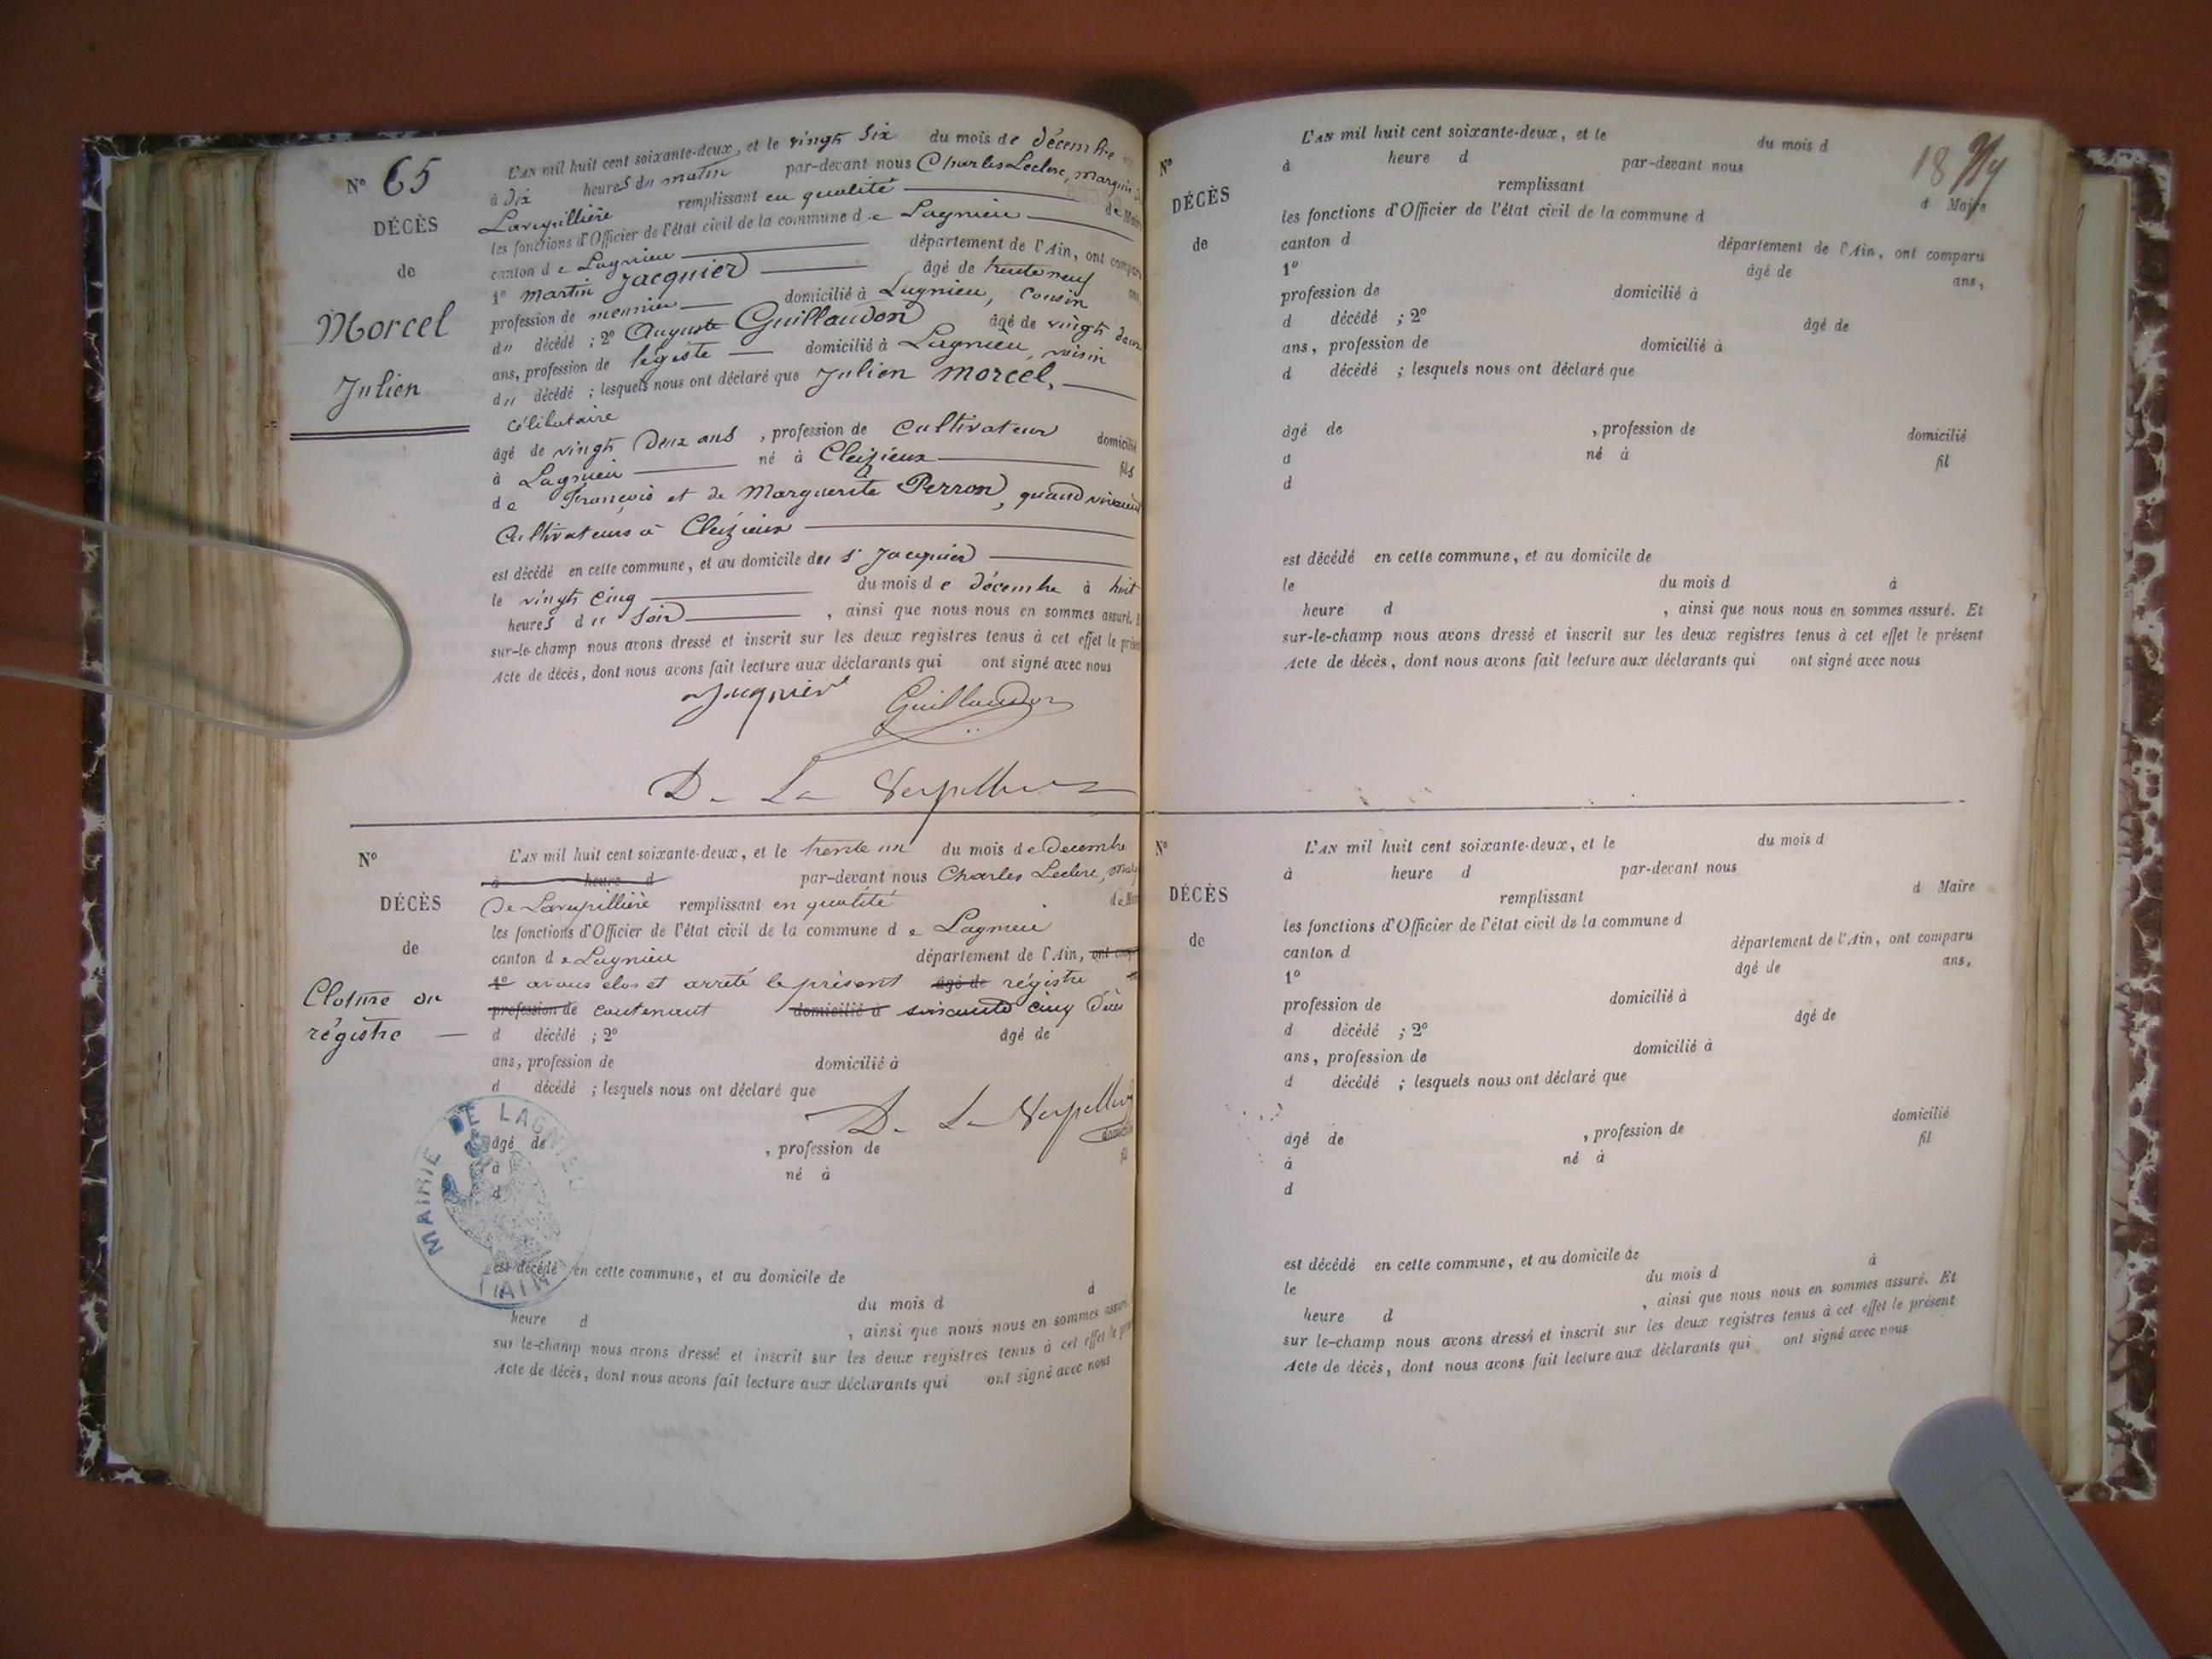 N° 65
DÉCÈS
de
Morcel
Julien
L'AN mil huit cent soixante-deux, et le vingt six du mois de décembre
à dix heures du matin par-devant nous Charles Leclerc, marquis de
Laverpillière remplissant en qualité de Maire
les fonctions d'Officier de l'état civil de la commune de Lagnieu
canton de Lagnieu département de l'Ain, ont comparu
1° martin Jacquier âgé de trente neuf ans
profession de meunier domicilié à Lagnieu, cousin
du décédé ; 2° Auguste Guillaudon âgé de vingt deux
ans, profession de légiste domicilié à Lagnieu, voisin
du décédé ; lesquels nous ont déclaré que Julien morcel,
célibataire
âgé de vingt deux ans , profession de cultivateur domicilié
à Lagnieu né à Cleizieux fils
de François et de Marguerite Perron, quand vivaient
Cultivateurs à Cleizieux
est décédé en cette commune, et au domicile du s. Jacquier
le vingt cinq du mois de décembre à huit
heures du soir , ainsi que nous nous en sommes assuré. Et
sur-le-champ nous avons dressé et inscrit sur les deux registres tenus à cet effet le présent
Acte de décès, dont nous avons fait lecture aux déclarants qui ont signé avec nous
Jaquier Guillaudon
De La Verpillière
N°
DÉCÈS
de
Cloture du
régistre
L'AN mil huit cent soixante-deux, et le trente un du mois de Decembre
à heure d par-devant nous Charles Leclerc, marq
De Laverpillière remplissant en qualité de Maire
les fonctions d'Officier de l'état civil de la commune de Lagnieu
canton de Lagnieu département de l'Ain, ont comp
1° avons clos et arrêté le présent âgé de régistre
profession de contenant domicilié à soixante cinq Décès
d décédé ; 2° âgé de
ans, profession de domicilié à
d décédé ; lesquels nous ont déclaré que
De La Verpillière
domicilié
âgé de , profession de fil
à né à
d
MAIRIE DE LAGNIEU
(AIN)
est décédé en cette commune, et au domicile de
du mois d à
heure d , ainsi que nous nous en sommes assuré
sur-le-champ nous avons dressé et inscrit sur les deux registres tenus à cet effet le présent
Acte de décès, dont nous avons fait lecture aux déclarants qui ont signé avec nous
N°
DÉCÈS
de
L'AN mil huit cent soixante-deux, et le du mois d
à heure d par-devant nous
remplissant d Maire
les fonctions d'Officier de l'état civil de la commune d
canton d département de l'Ain, ont comparu
1° âgé de ans,
profession de domicilié à
d décédé ; 2° âgé de
ans, profession de domicilié à
d décédé ; lesquels nous ont déclaré que
âgé de , profession de domicilié
à né à fil
d
est décédé en cette commune, et au domicile de
le du mois d à
heure d , ainsi que nous nous en sommes assuré. Et
sur-le-champ nous avons dressé et inscrit sur les deux registres tenus à cet effet le présent
Acte de décès, dont nous avons fait lecture aux déclarants qui ont signé avec nous
N°
DÉCÈS
de
L'AN mil huit cent soixante-deux, et le du mois d
à heure d par-devant nous
remplissant d Maire
les fonctions d'Officier de l'état civil de la commune d
canton d département de l'Ain, ont comparu
1° âgé de ans,
profession de domicilié à
d décédé ; 2° âgé de
ans, profession de domicilié à
d décédé ; lesquels nous ont déclaré que
âgé de , profession de domicilié
à né à fil
d
est décédé en cette commune, et au domicile de
le du mois d à
heure d , ainsi que nous nous en sommes assuré. Et
sur le-champ nous avons dressé et inscrit sur les deux registres tenus à cet effet le présent
Acte de décès, dont nous avons fait lecture aux déclarants qui ont signé avec nous